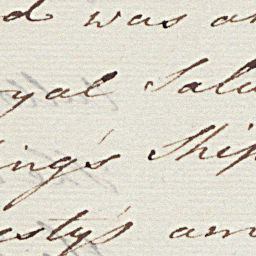 d was an
yal Salu
ing's Ship
esty's am